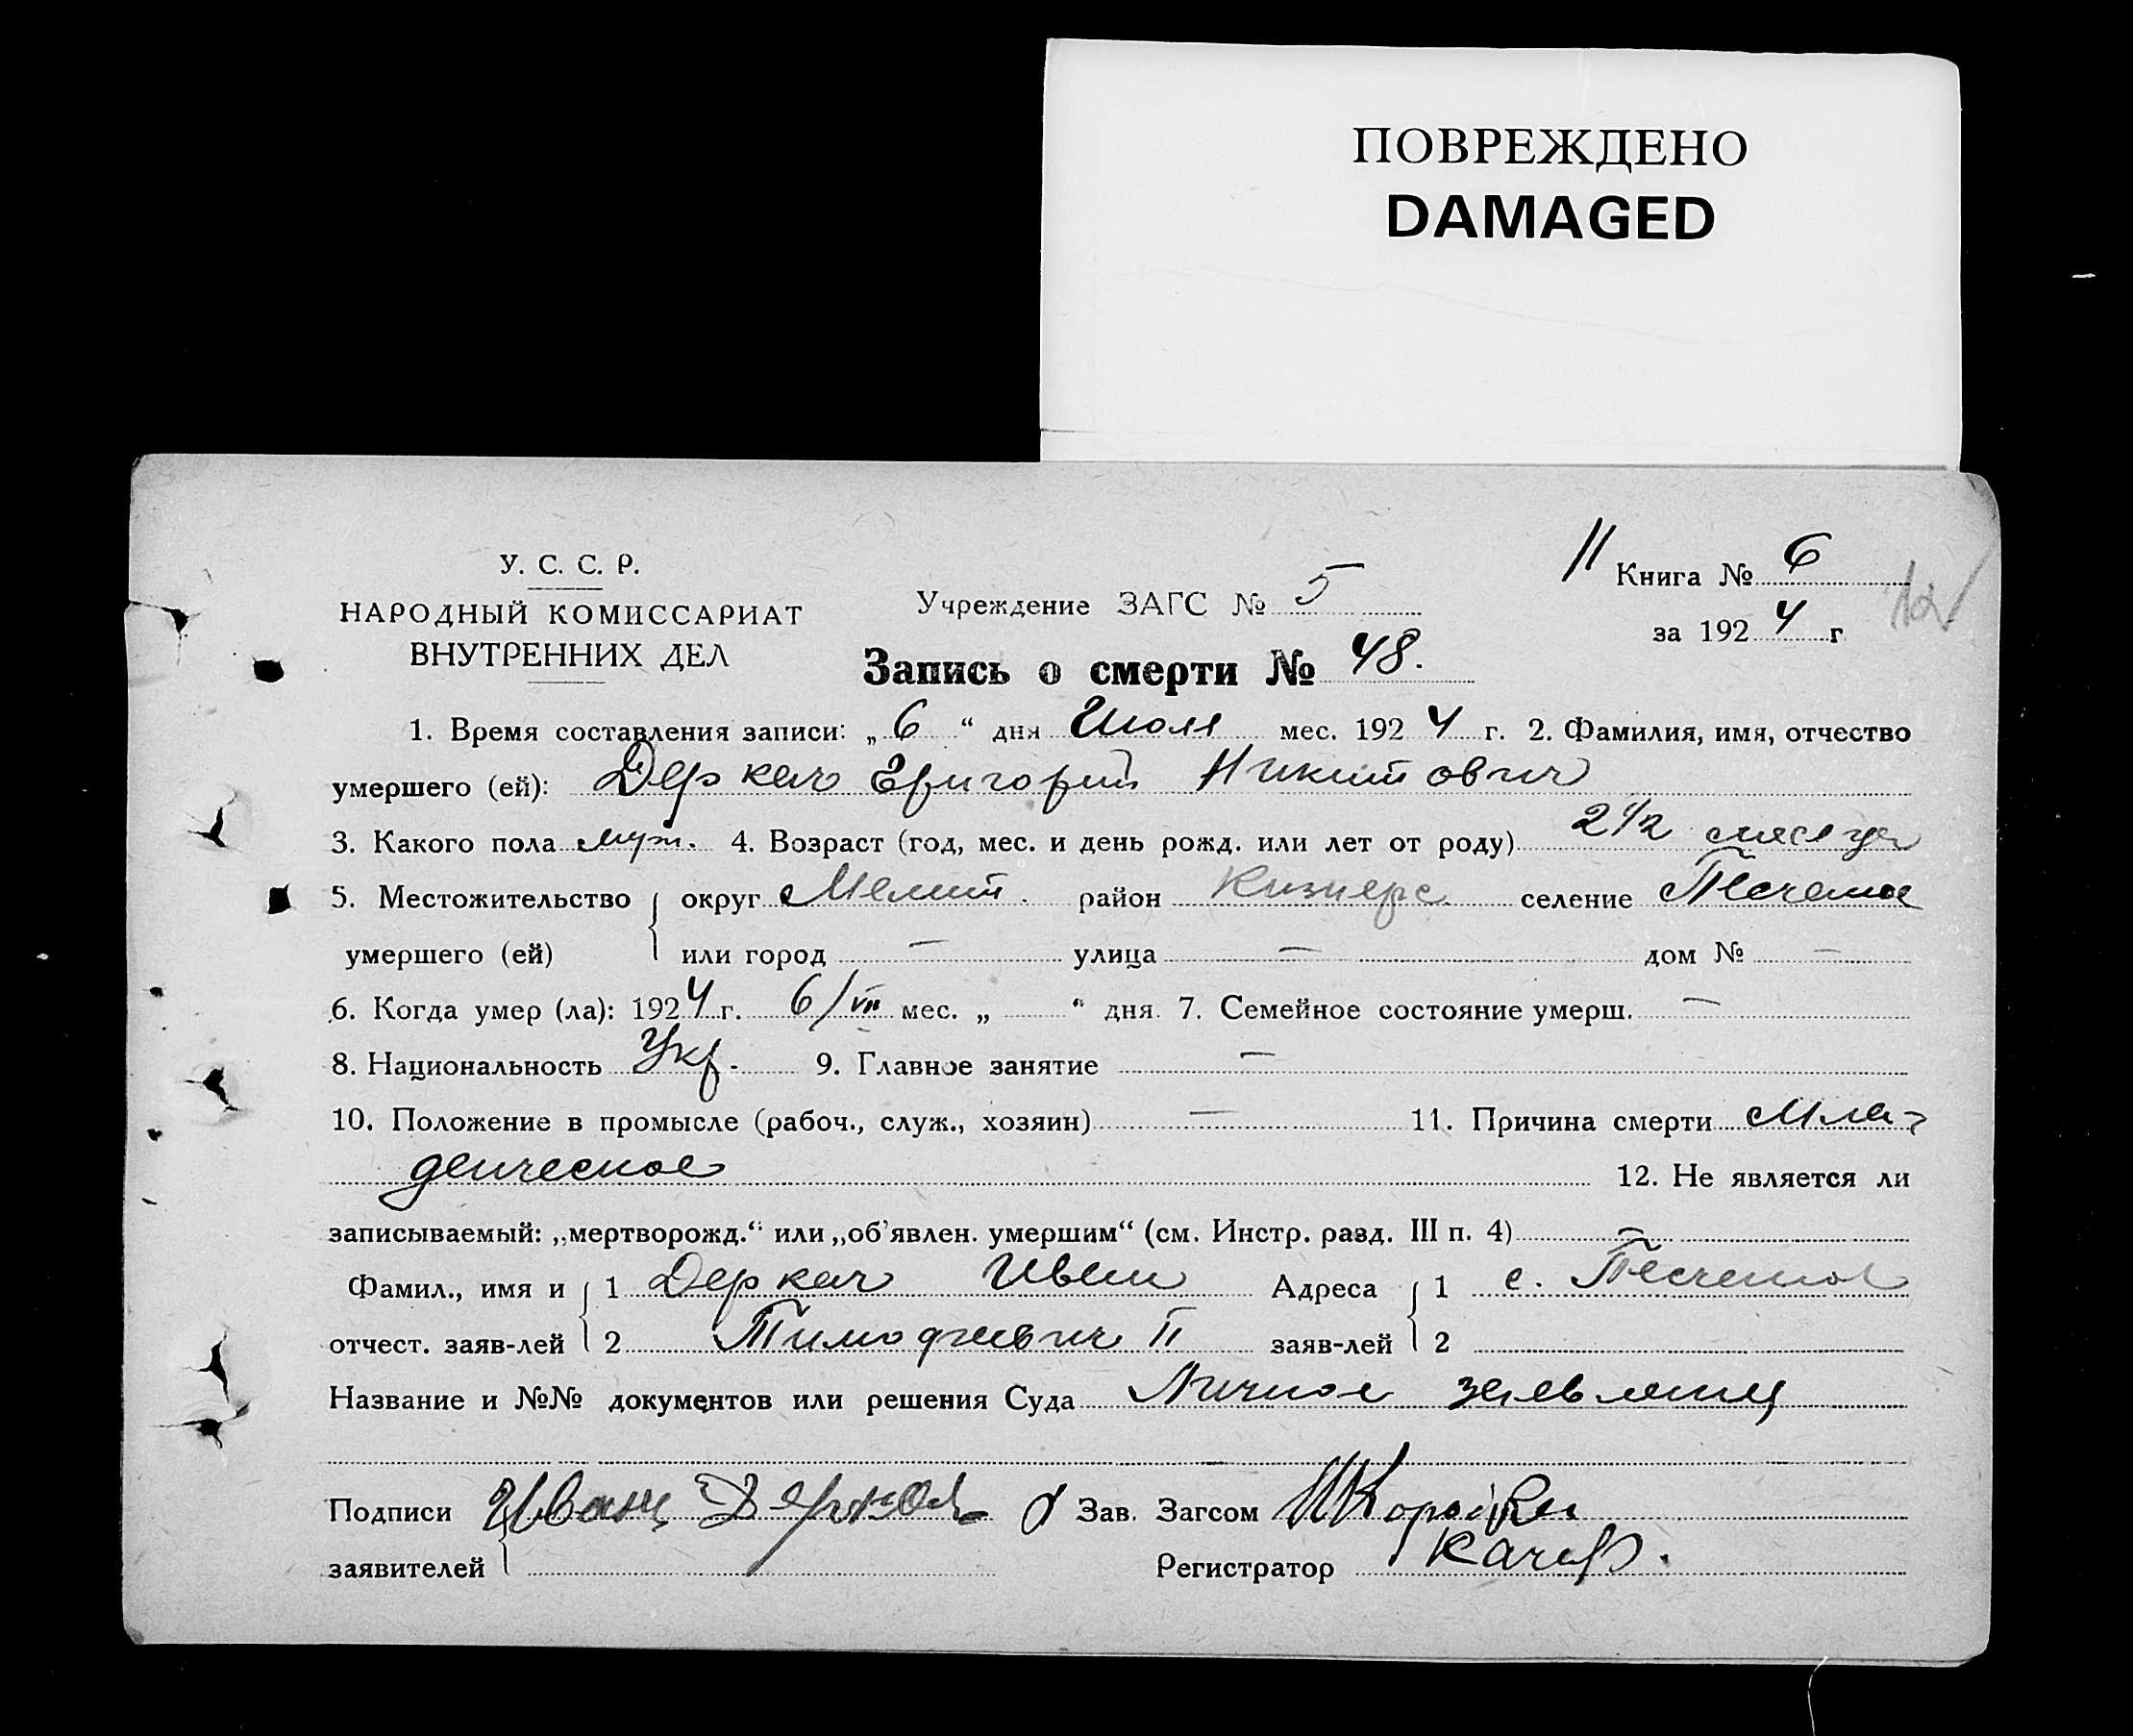 ПОВРЕЖДЕНО
DAMAGED
У. С. С. Р.
НАРОДНЫЙ КОМИССАРИАТ
ВНУТРЕННИХ ДЕЛ
Учреждение ЗАГС № 5
11 Книга № 6
за 1924 г
12
Запись о смерти № 48.
1. Время составления записи: „ 6 “ дня Июля мес. 1924 г. 2. Фамилия, имя, отчество
умершего (ей): Деркач Григорий Никитович
3. Какого пола муж. 4. Возраст (год, мес. и день рожд. или лет от роду) 2 1/2 месяца
5. Местожительство { округ Мелит. район селение Песчаное
умершего (ей) или город — улица — дом № —
6. Когда умер (ла): 1924 г. 6/VII мес. „ “ дня. 7. Семейное состояние умерш. —
8. Национальность Укр. 9. Главное занятие —
10. Положение в промысле (рабоч., служ., хозяин) — 11. Причина смерти Мла-
денческое 12. Не является ли
записываемый: „мертворожд.“ или „об'явлен. умершим“ (см. Инстр. разд. III п. 4) —
Фамил., имя и { 1 Деркач Иван Адреса { 1 с. Песчаное
отчест. заяв-лей 2 Тимофеевич II заяв-лей 2
Название и №№ документов или решения Суда Личное
Подписи { Иван Зав. Загсом
заявителей Регистратор